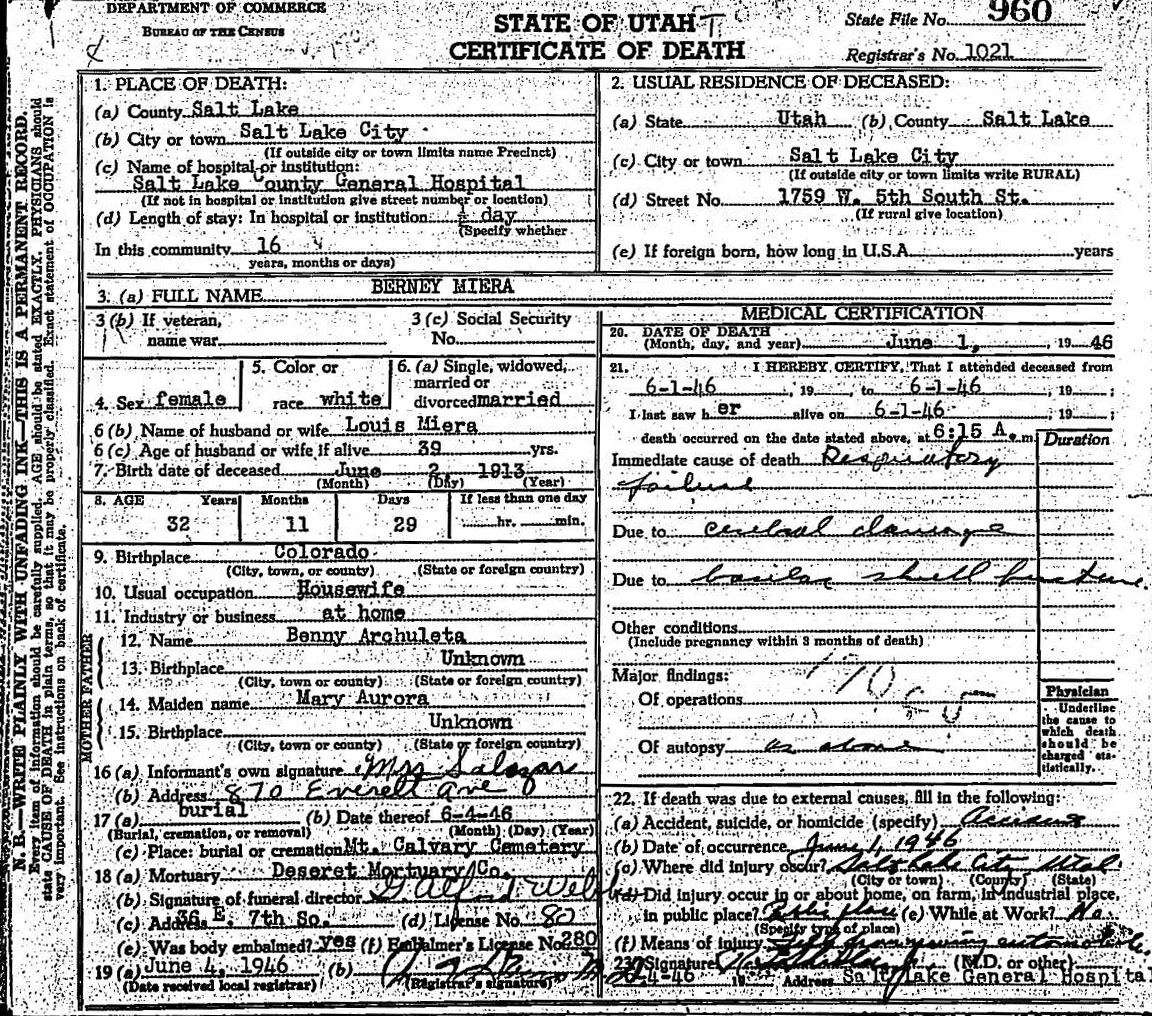 DEPARTMENT OF COMMERCE
BUREAU OF THE CENSUS
STATE OF UTAH
CERTIFICATE OF DEATH
State File No. 960
Registrar's No. 1021
N. B.—WRITE PLAINLY WITH UNFADING INK—THIS IS A PERMANENT RECORD.
Every item of information should be carefully supplied. AGE should be stated EXACTLY. PHYSICIANS should
state CAUSE OF DEATH in plain terms, so that it may be properly classified. Exact statement of OCCUPATION is
very important. See instructions on back of certificate.
1. PLACE OF DEATH:
(a) County Salt Lake
(b) City or town Salt Lake City
(If outside city or town limits name Precinct)
(c) Name of hospital or institution:
Salt Lake County General Hospital
(If not in hospital or institution give street number or location)
(d) Length of stay: In hospital or institution ½ day
(Specify whether
In this community 16 y
years, months or days)
2. USUAL RESIDENCE OF DECEASED:
(a) State Utah (b) County Salt Lake
(c) City or town Salt Lake City
(If outside city or town limits write RURAL)
(d) Street No. 1759 W. 5th South St.
(If rural give location)
(e) If foreign born, how long in U.S.A. years
3. (a) FULL NAME BERNEY MIERA
3 (b) If veteran,
name war
3 (c) Social Security
No.
4. Sex female
5. Color or
race white
6. (a) Single, widowed,
married or
divorced married
6 (b) Name of husband or wife Louis Miera
6 (c) Age of husband or wife if alive 39 yrs.
7. Birth date of deceased June 2, 1913
(Month) (Day) (Year)
8. AGE Years Months Days If less than one day
32 11 29 hr. min.
9. Birthplace Colorado
(City, town, or county) (State or foreign country)
10. Usual occupation Housewife
11. Industry or business at home
FATHER
12. Name Benny Archuleta
13. Birthplace Unknown
(City, town or county) (State or foreign country)
MOTHER
14. Maiden name Mary Aurora
15. Birthplace Unknown
(City, town or county) (State or foreign country)
16 (a) Informant's own signature Mrs Salazar
(b) Address 870 Everett Ave
17 (a) burial (b) Date thereof 6-4-46
(Burial, cremation, or removal) (Month) (Day) (Year)
(c) Place: burial or cremation Mt. Calvary Cemetery
18 (a) Mortuary Deseret Mortuary Co.
(b) Signature of funeral director
(c) Address 36 E. 7th So. (d) License No. 80
(e) Was body embalmed? yes (f) Embalmer's License No. 280
19 (a) June 4, 1946 (b)
(Date received local registrar) (Registrar's signature)
MEDICAL CERTIFICATION
20. DATE OF DEATH
(Month, day, and year) June 1, 19 46
21. I HEREBY CERTIFY, That I attended deceased from
6-1-46, 19 to 6-1-46, 19 ;
I last saw h er alive on 6-1-46 ; 19 ;
death occurred on the date stated above, at 6:15 A. m.
Duration
Immediate cause of death Respiratory
failure
Due to cerebral damage
Due to basilar skull fracture
Other conditions
(Include pregnancy within 3 months of death)
Major findings:
Of operations
Of autopsy as above
Physician
Underline
the cause to
which death
should be
charged sta-
tistically.
22. If death was due to external causes, fill in the following:
(a) Accident, suicide, or homicide (specify) Accident
(b) Date of occurrence June 1, 1946
(c) Where did injury occur? Salt Lake City Utah
(City or town) (County) (State)
(d) Did injury occur in or about home, on farm, in industrial place,
in public place? Public place (e) While at Work? No
(Specify type of place)
(f) Means of injury Fell from moving automobile.
23. Signature (M.D. or other)
6-4-46 19 Address Salt Lake General Hospital